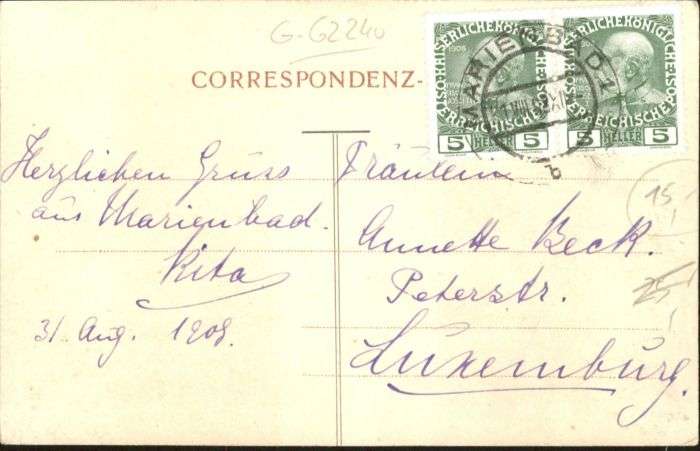 G-G2240
CORRESPONDENZ-
KAISERLICHE KÖNIGLICHE
ÖSTERREICHISCHE POST
1908
5 HELLER 5
KAISERLICHE KÖNIGLICHE
ÖSTERREICHISCHE POST
5 HELLER 5
MARIENBAD 1
b
Herzlichen Gruss
aus Marienbad.
Rita
31 Aug. 1908.
Fräulein
Annette Beck.
Peterstr.
Luxemburg.
15
25